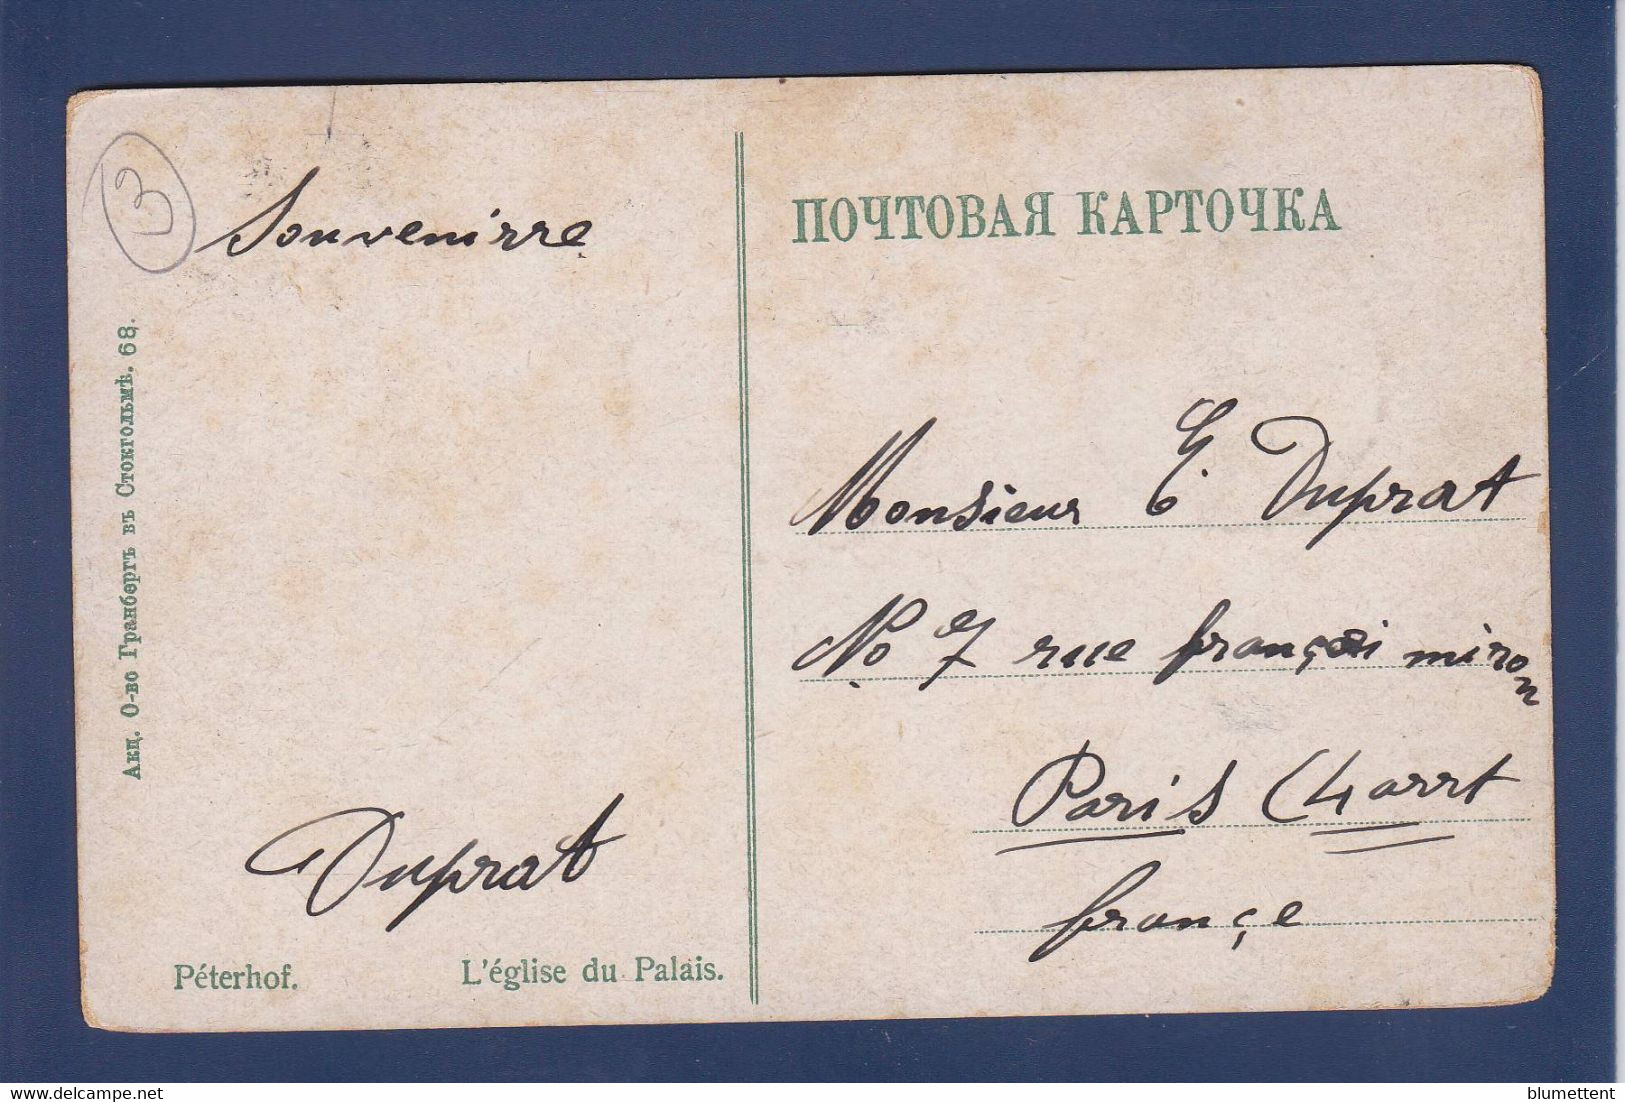 3
Souvenirre
Акц. О-во Гранбергъ въ Стокгольмѣ. 68.
Duprat
Péterhof. L'église du Palais.
ПОЧТОВАЯ КАРТОЧКА
Monsieur E. Duprat
No 7 rue françoi miron
Paris (4 arrt
françe
blumettent